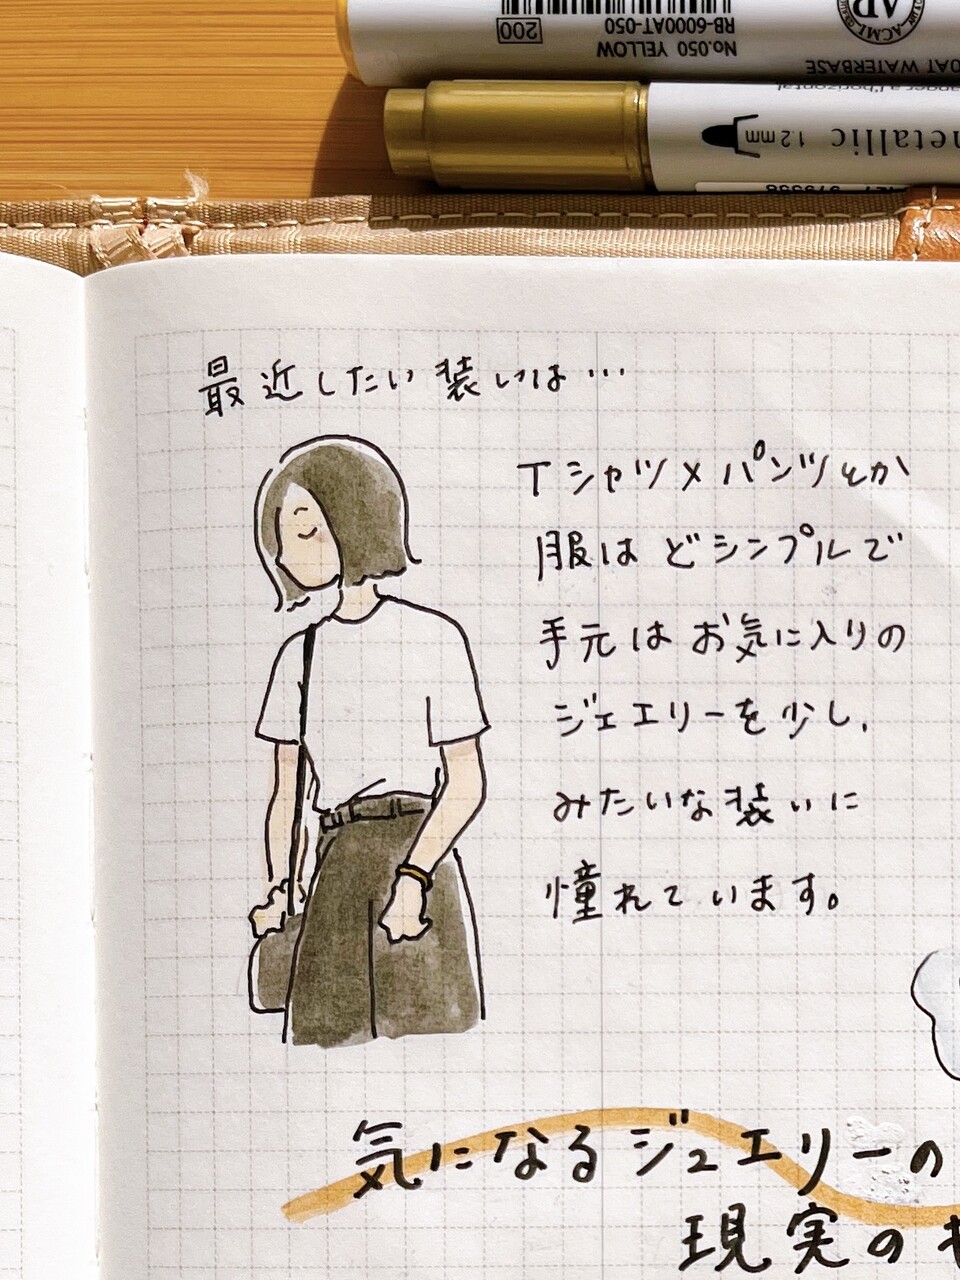 No.050 YELLOW
RB-6000AT-050
200
AP
ACMI
OAT WATERBASE
metallic 1.2mm
最近したい装いは…
Tシャツ×パンツとか
服はどシンプルで
手元はお気に入りの
ジェエリーを少し、
みたいな装いに
憧れています。
気になるジュエリーの
現実の